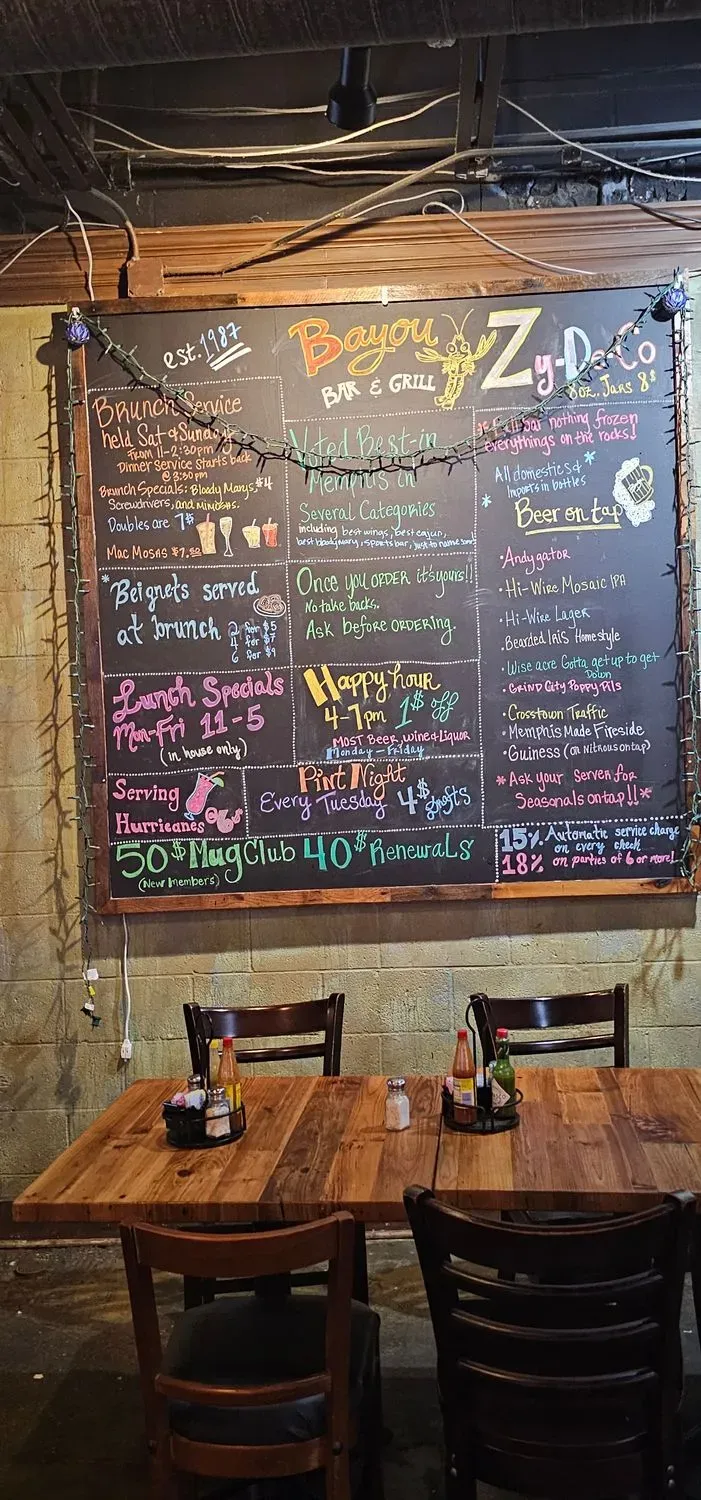 est. 1987
Bayou
BAR & GRILL
Zy-De-Co
8OZ. Jars 8$
Brunch Service
held Sat & Sunday
From 11-2:30pm
Dinner Service starts back
@ 3:30pm
Brunch Specials: Bloody Marys, $4
Screwdrivers, and mimosas.
Doubles are 7$
Mac Mosas $7.50
*Beignets served
at brunch
2 for $5
4 for $7
6 for $9
Lunch Specials
Mon-Fri 11-5
(in house only)
Serving
Hurricanes
Voted Best in
Memphis in
Several Categories
including best wings, best cajun,
best bloody mary, sports bar, just to name some!
Once you ORDER it's yours!!
No take backs.
Ask before ORDERING.
Happy hour
4-7pm 1$ off
MOST Beer, wine & Liquor
Monday - Friday
Pint Night
Every Tuesday 4$ drafts
50$ Mug Club 40$ Renewals
(New Members)
bar nothing frozen
everythings on the rocks!
All domestics &
Imports in bottles
Beer on tap
• Andygator
• Hi-Wire Mosaic IPA
• Hi-Wire Lager
• Bearded Iris Homestyle
• Wiseacre Gotta get up to get
Down
• GRIND CITY Poppy Pils
• Crosstown Traffic
• Memphis Made Fireside
• Guiness (on Nitrous on tap)
*Ask your server for
Seasonals on tap!!*
15% Automatic service charge
on every check
18% on parties of 6 or more!